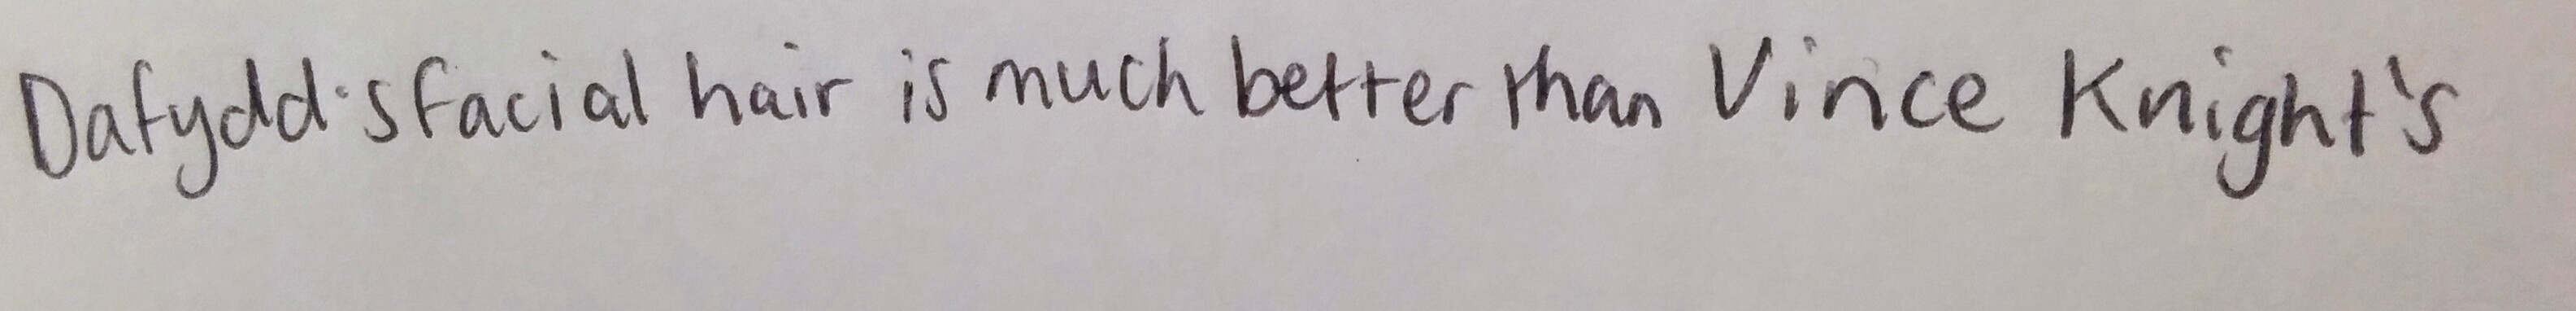 Dafydd's facial hair is much better than Vince Knight's